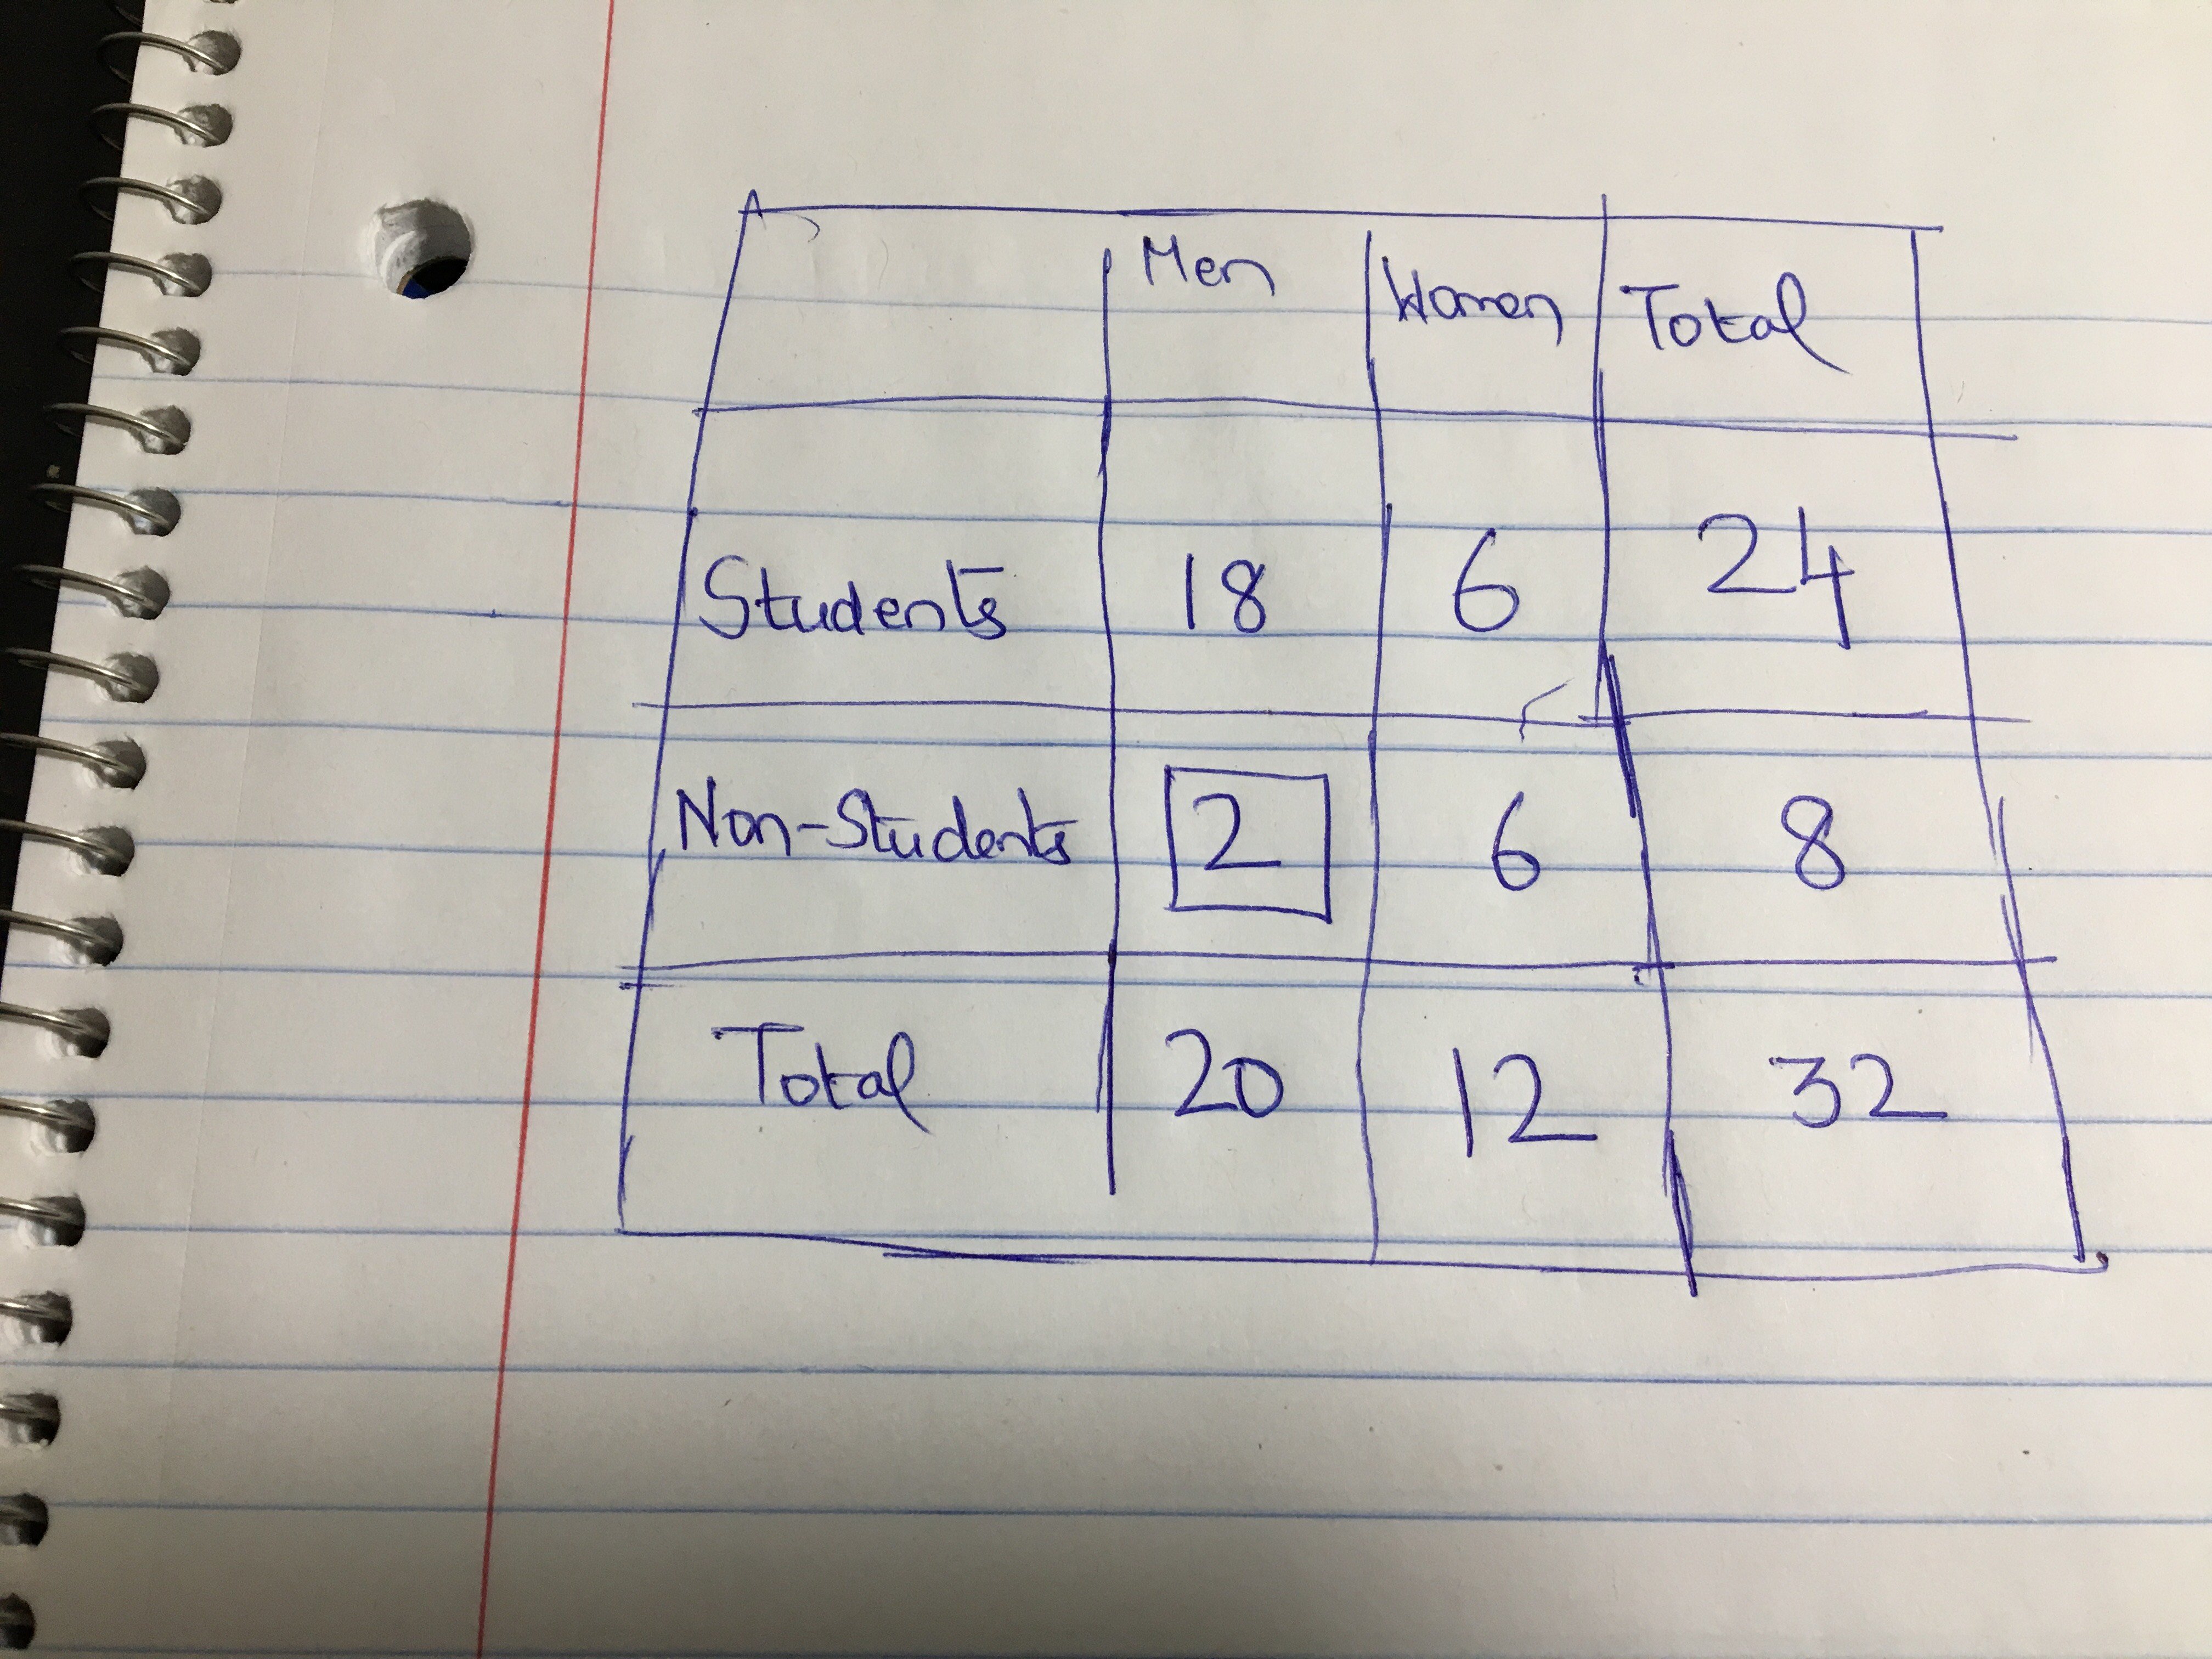 Men Women Total
Students 18 6 24
Non-Students 2 6 8
Total 20 12 32